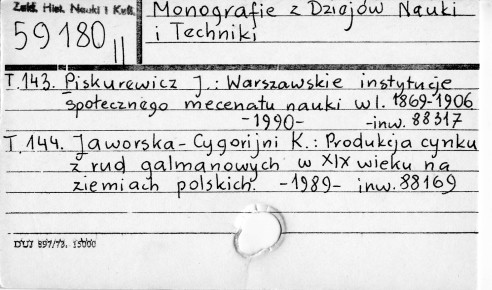 Zakł. Hist. Nauki i
59180 II
Monografie z Dziejów Nauki
i Techniki
T.143. Piskurewicz J.: Warszawskie instytucje
społecznego mecenatu nauki w l. 1869-1906
-1990- -inw. 88317
T.144. Jaworska-Cygorijni K.: Produkcja cynku
z rud galmanowych w XIX wieku na
ziemiach polskich. -1989- inw. 88169
DUJ 897/73. 15000